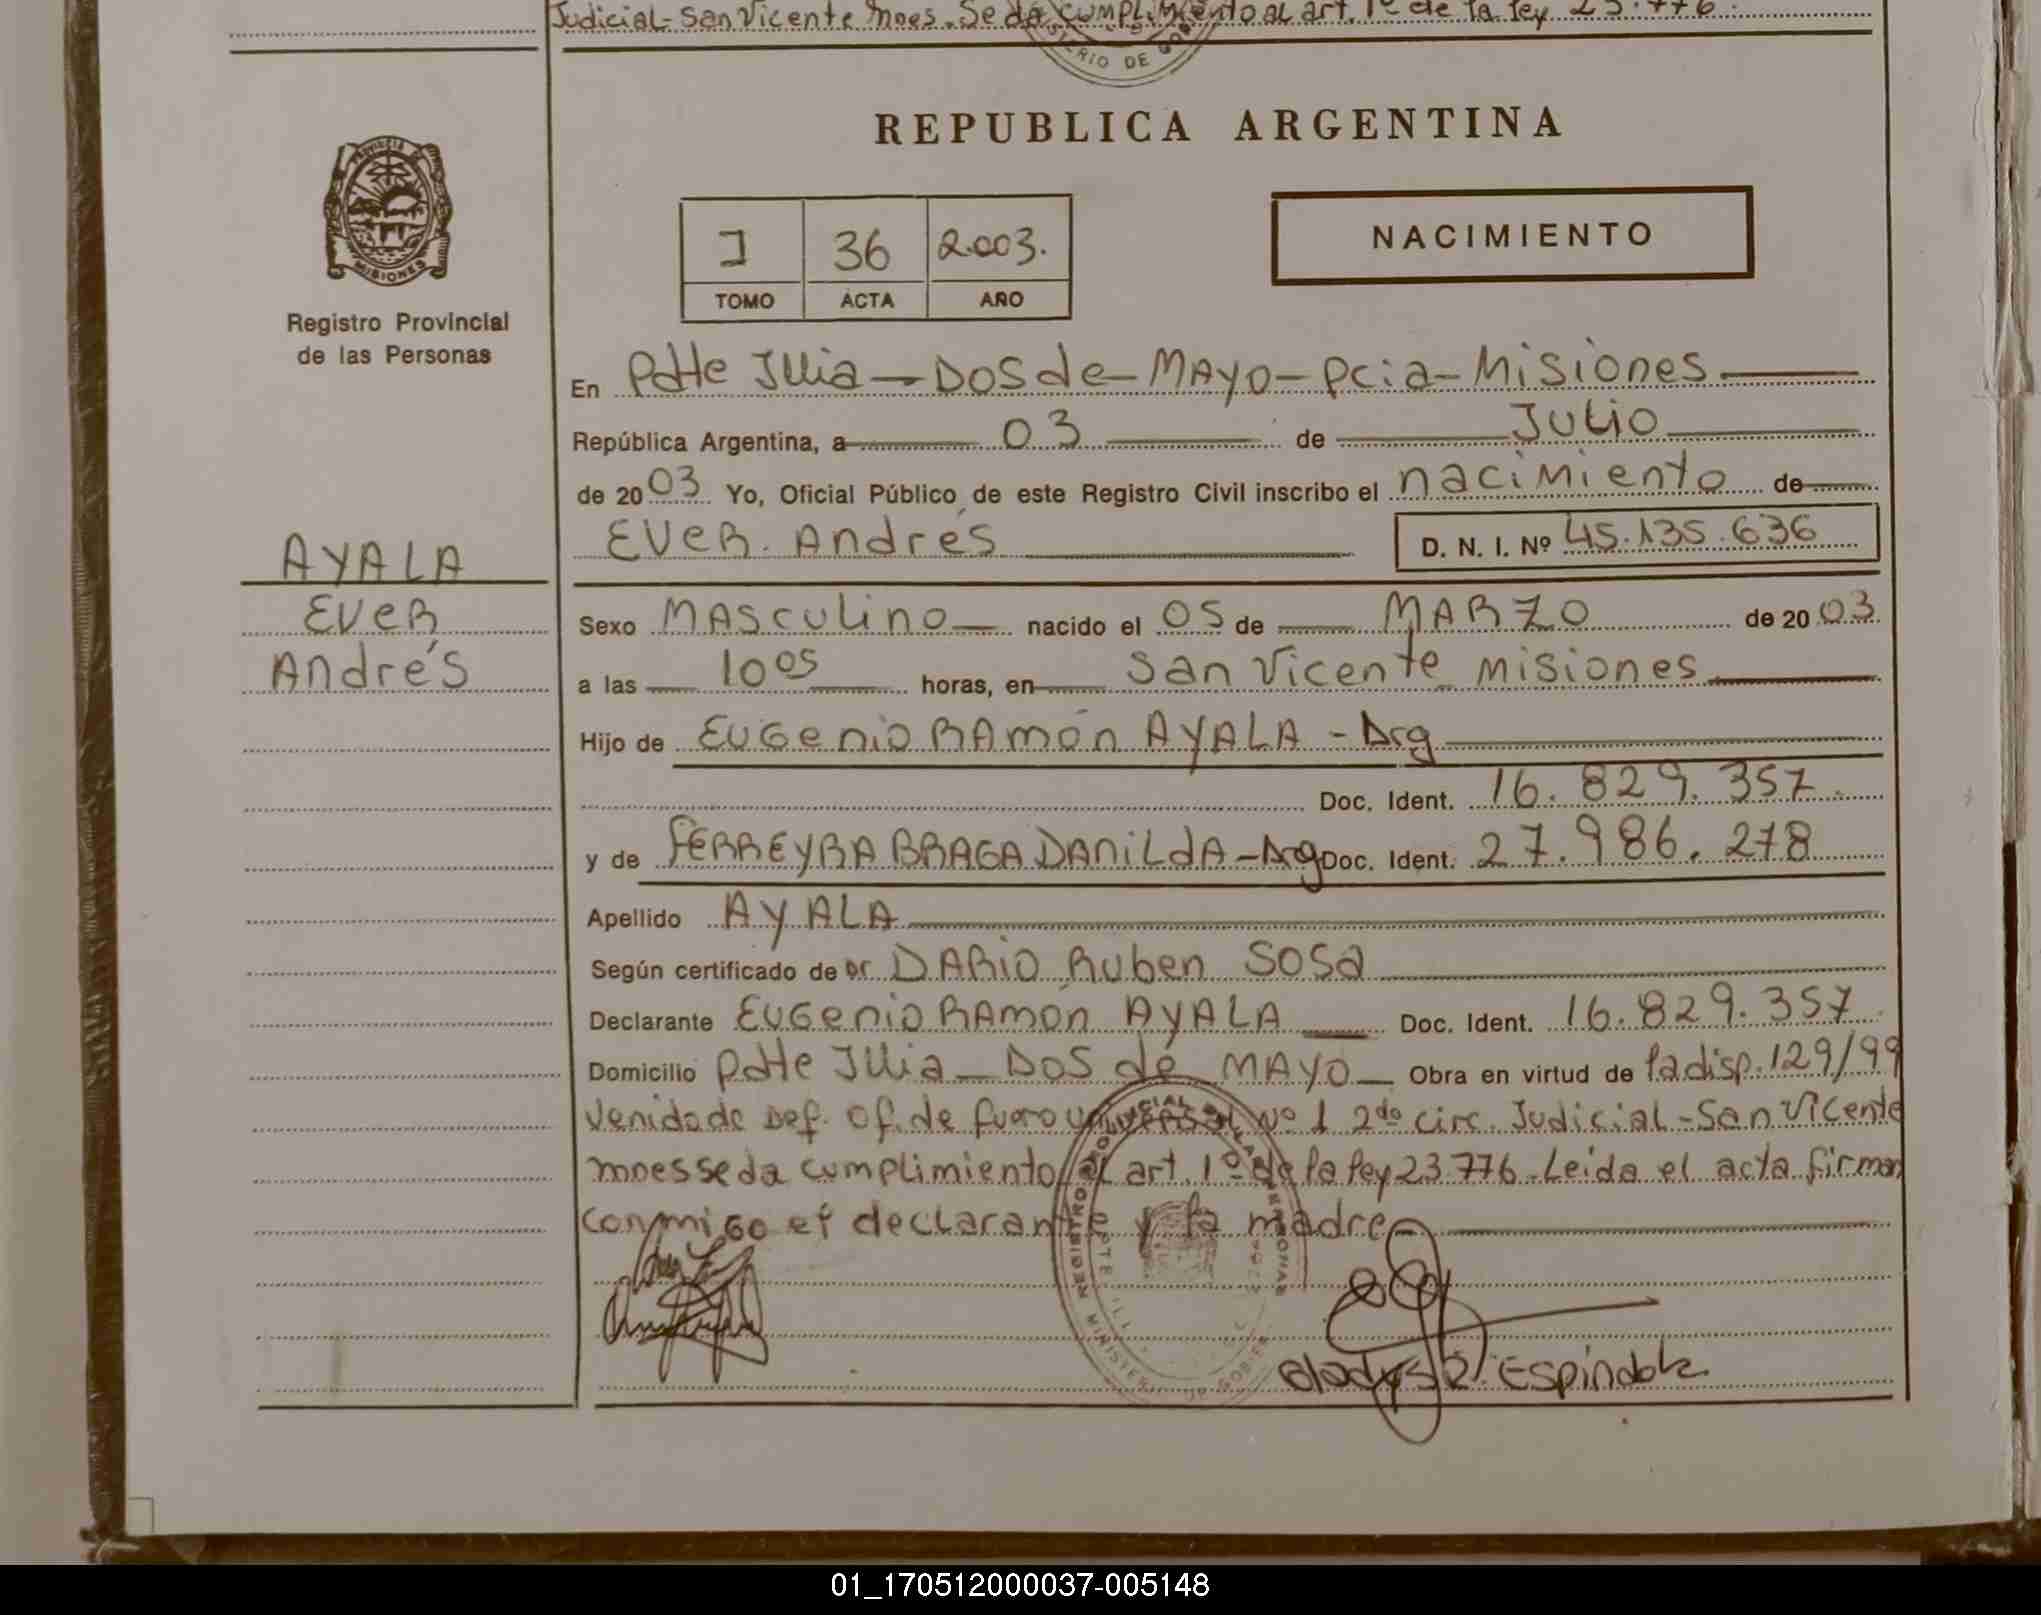 Judicial-San Vicente Mnes. Se da cumplimiento al art. 1º de la ley 23.776.
REPUBLICA ARGENTINA
PROVINCIA DE
MISIONES
Registro Provincial
de las Personas
I 36 2.003.
TOMO ACTA AÑO
NACIMIENTO
En Pdte Illia - DOS de - MAYO - Pcia - Misiones
República Argentina, a 03 de Julio
de 2003 Yo, Oficial Público de este Registro Civil inscribo el nacimiento de
EVER Andrés D. N. I. Nº 45.135.636
AYALA
EVER
Andrés
Sexo MASculino nacido el 05 de MARZO de 2003
a las 10 05 horas, en San Vicente Misiones
Hijo de EUGenio RAmón AYALA - Arg
Doc. Ident. 16.829.357.
y de FERREYRA BRAGA DANiLdA - Arg Doc. Ident. 27.986.278
Apellido AYALA
Según certificado de Dr DARio Ruben SOSa
Declarante EUGenio RAmón AYALA Doc. Ident. 16.829.357.
Domicilio Pdte Illia - DOS de MAYO - Obra en virtud de la disp. 129/99
venida de Def. Of. de fuero universal Nº 1 2da Circ. Judicial - San Vicente
mnes se da cumplimiento al art. 1º de la ley 23.776. Leída el acta firman
conmiGo el declarante y la madre
REGISTRO PROVINCIAL DE LAS PERSONAS
PTE ILL
MINISTERIO DE GOBIER
Gladys R. Espíndola
01_170512000037-005148